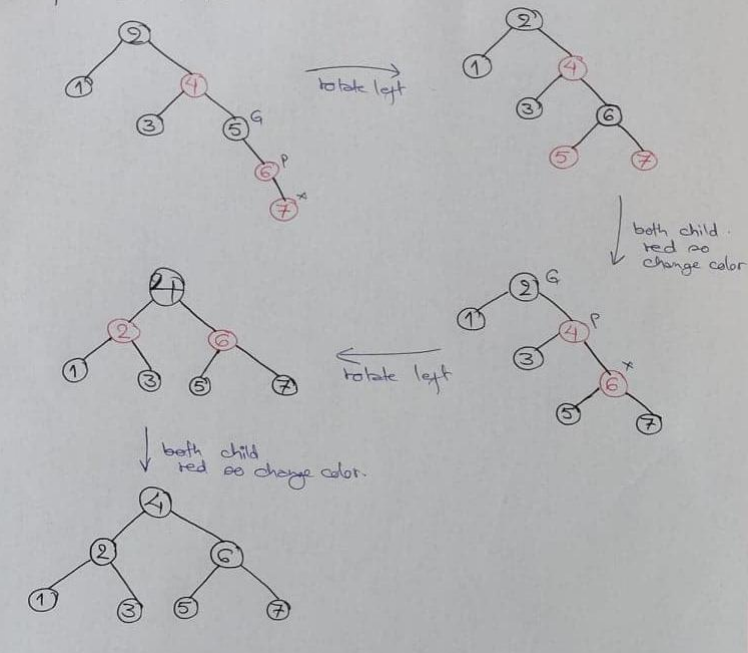 2
1
4
3
5 G
6 P
7 x
rotate left
2
1
4
3
6
5
7
both child
red so
change color
2 G
1
4 P
3
6 x
5
7
rotate left
4
2
6
1
3
5
7
both child
red so change color.
4
2
6
1
3
5
7